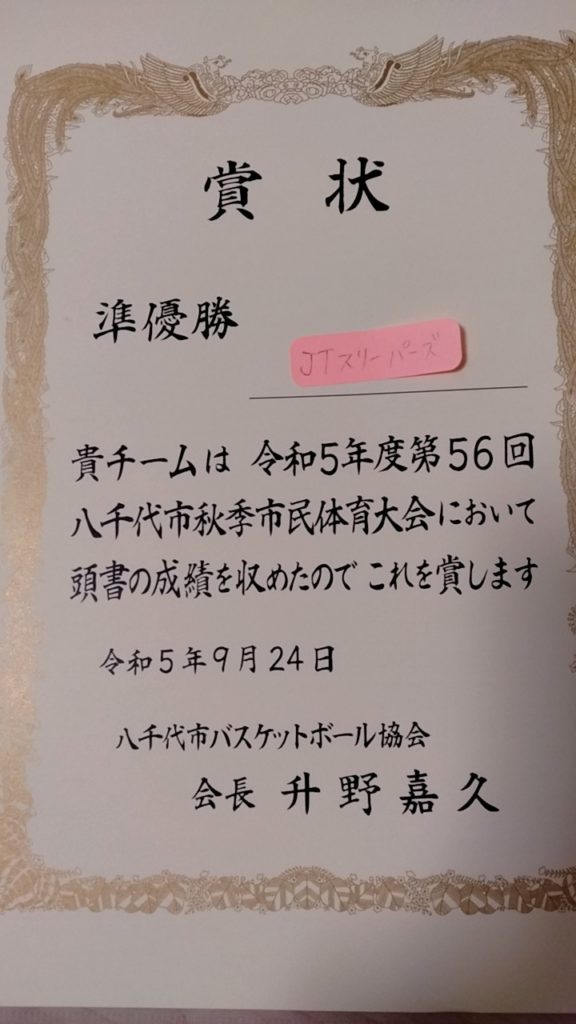 賞状
準優勝
JTスリーパーズ
貴チームは 令和5年度第56回
八千代市秋季市民体育大会において
頭書の成績を収めたので これを賞します
令和5年9月24日
八千代市バスケットボール協会
会長 升野嘉久